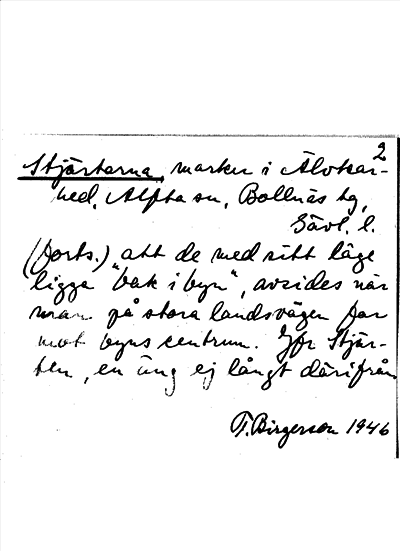 2
Stjärterna, marker i Älvkar-
hed, Alfta sn, Bollnäs tg,
Gävl. l.
(forts.) att de med sitt läge
ligga "bak i byn", avsides när
man på stora landsvägen far
mot byns centrum. Jfr Stjär-
ten, en äng ej långt därifrån
T. Birgerson 1946